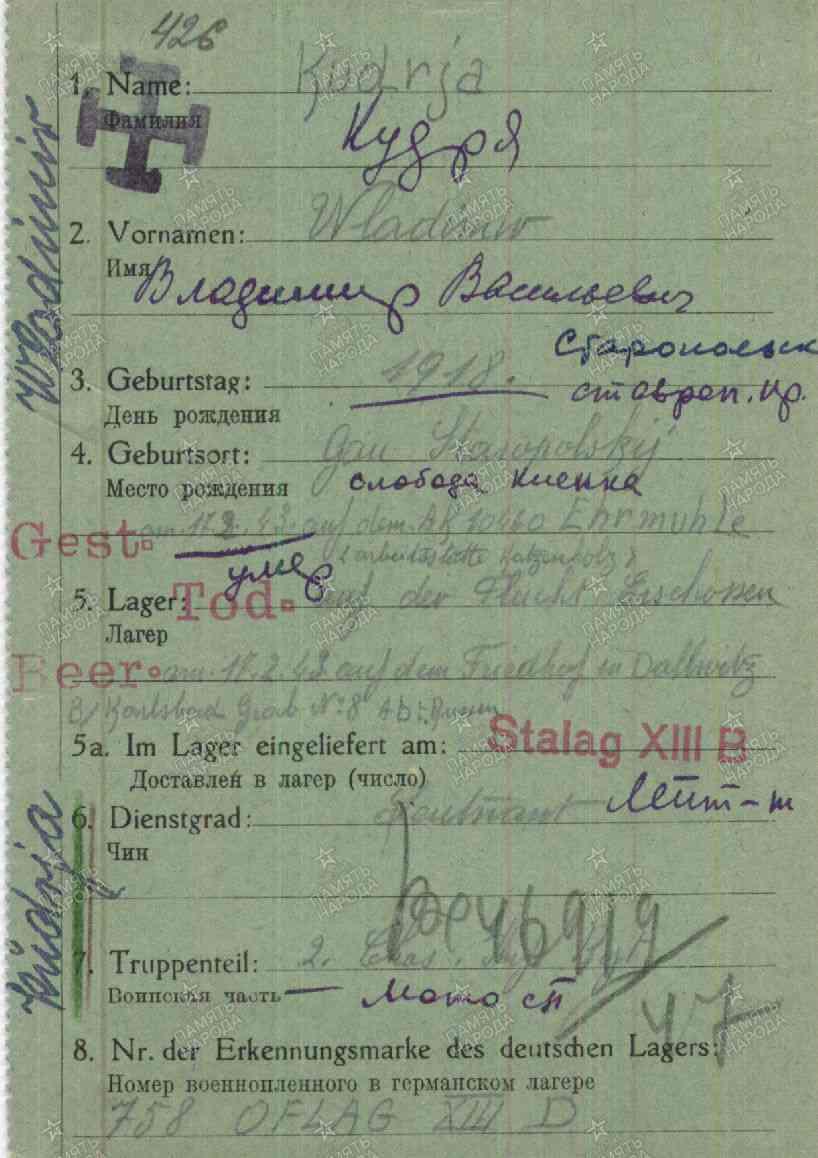 426
1. Name: Kudrja
Фамилия
Кудря
2. Vornamen: Wladimir
Имя
Владимир Васильевич
Старопольск
3. Geburtstag: 1918.
ставроп. кр.
День рождения
4. Geburtsort: Gau Staropolskij
Место рождения слобода
Gest. am 17.2.43. auf dem AK 10460 Ehrmühle
умер
5. Lager: Tod. auf der Flucht Erschossen
Лагер
Beer. am 17.2.43 auf dem Friedhof in Dallwitz
b/ Karlsbad Grab Nr 8 Abt.
5a. Im Lager eingeliefert am: Stalag XIII B
Доставлен в лагер (число)
6. Dienstgrad: Leutnant Лейт-т
Чин
7. Truppenteil: 2.
Воинская часть — Мото сп
47
8. Nr. der Erkennungsmarke des deutschen Lagers:
Номер военнопленного в германском лагере
758 OFLAG XIII D
Wladimir
Kudrja
ПАМЯТЬ НАРОДА